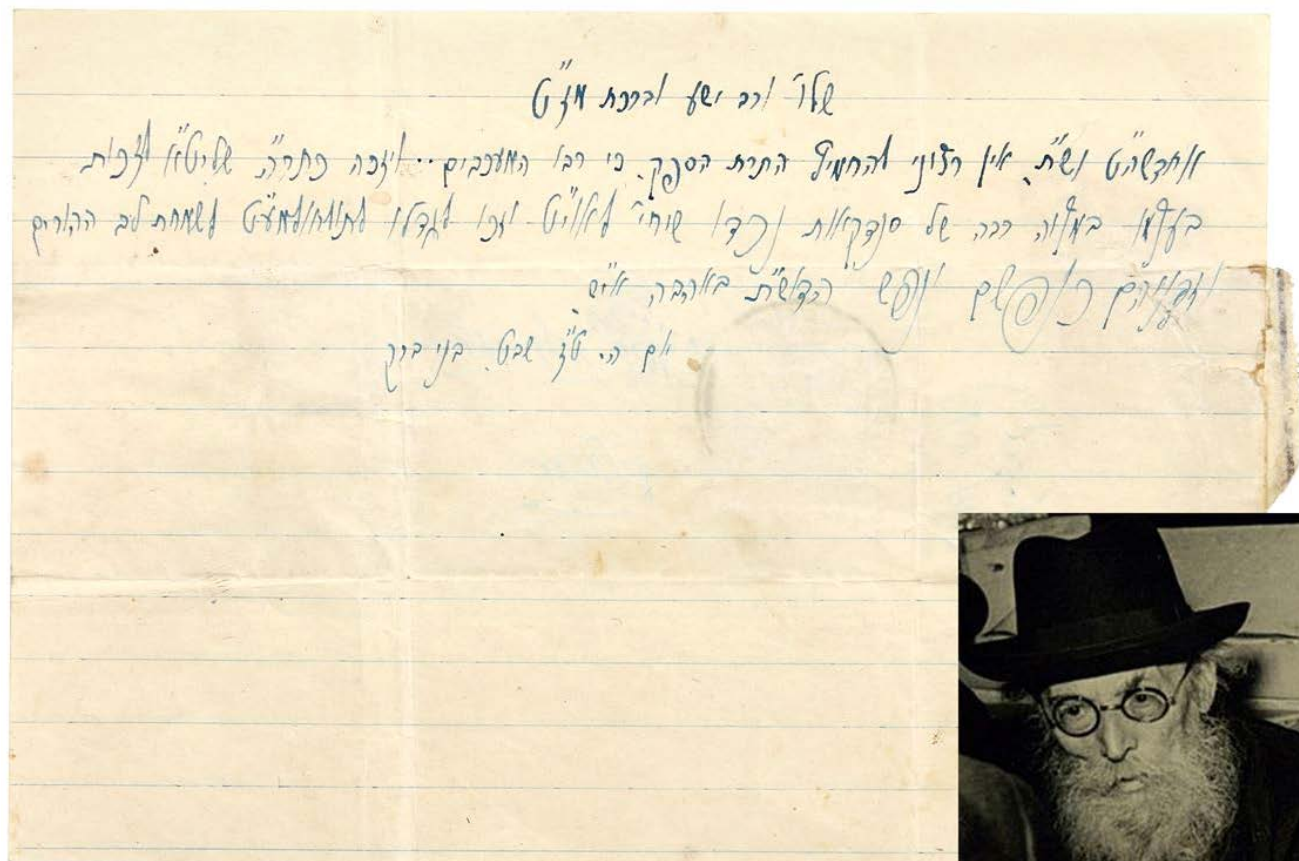 שלו' ורב ישע וברכת מז"ט
אחדשה"ט וש"ת, אין רצוני להחמיץ התרת הספק, כי רבו המעכבים.. ויזכה כתר"ה שליט"א לזכות
בעצמו במצוה רבה של סנדקאות ויהי' שיחי' לאוי"ט ויזכו לגדלו לתולחולמע"ט לשמחת לב ההורים
כנפשם ונפש הדוש"ת באהבה אי"ש
אם ה. ט"ז שבט. בני ברק